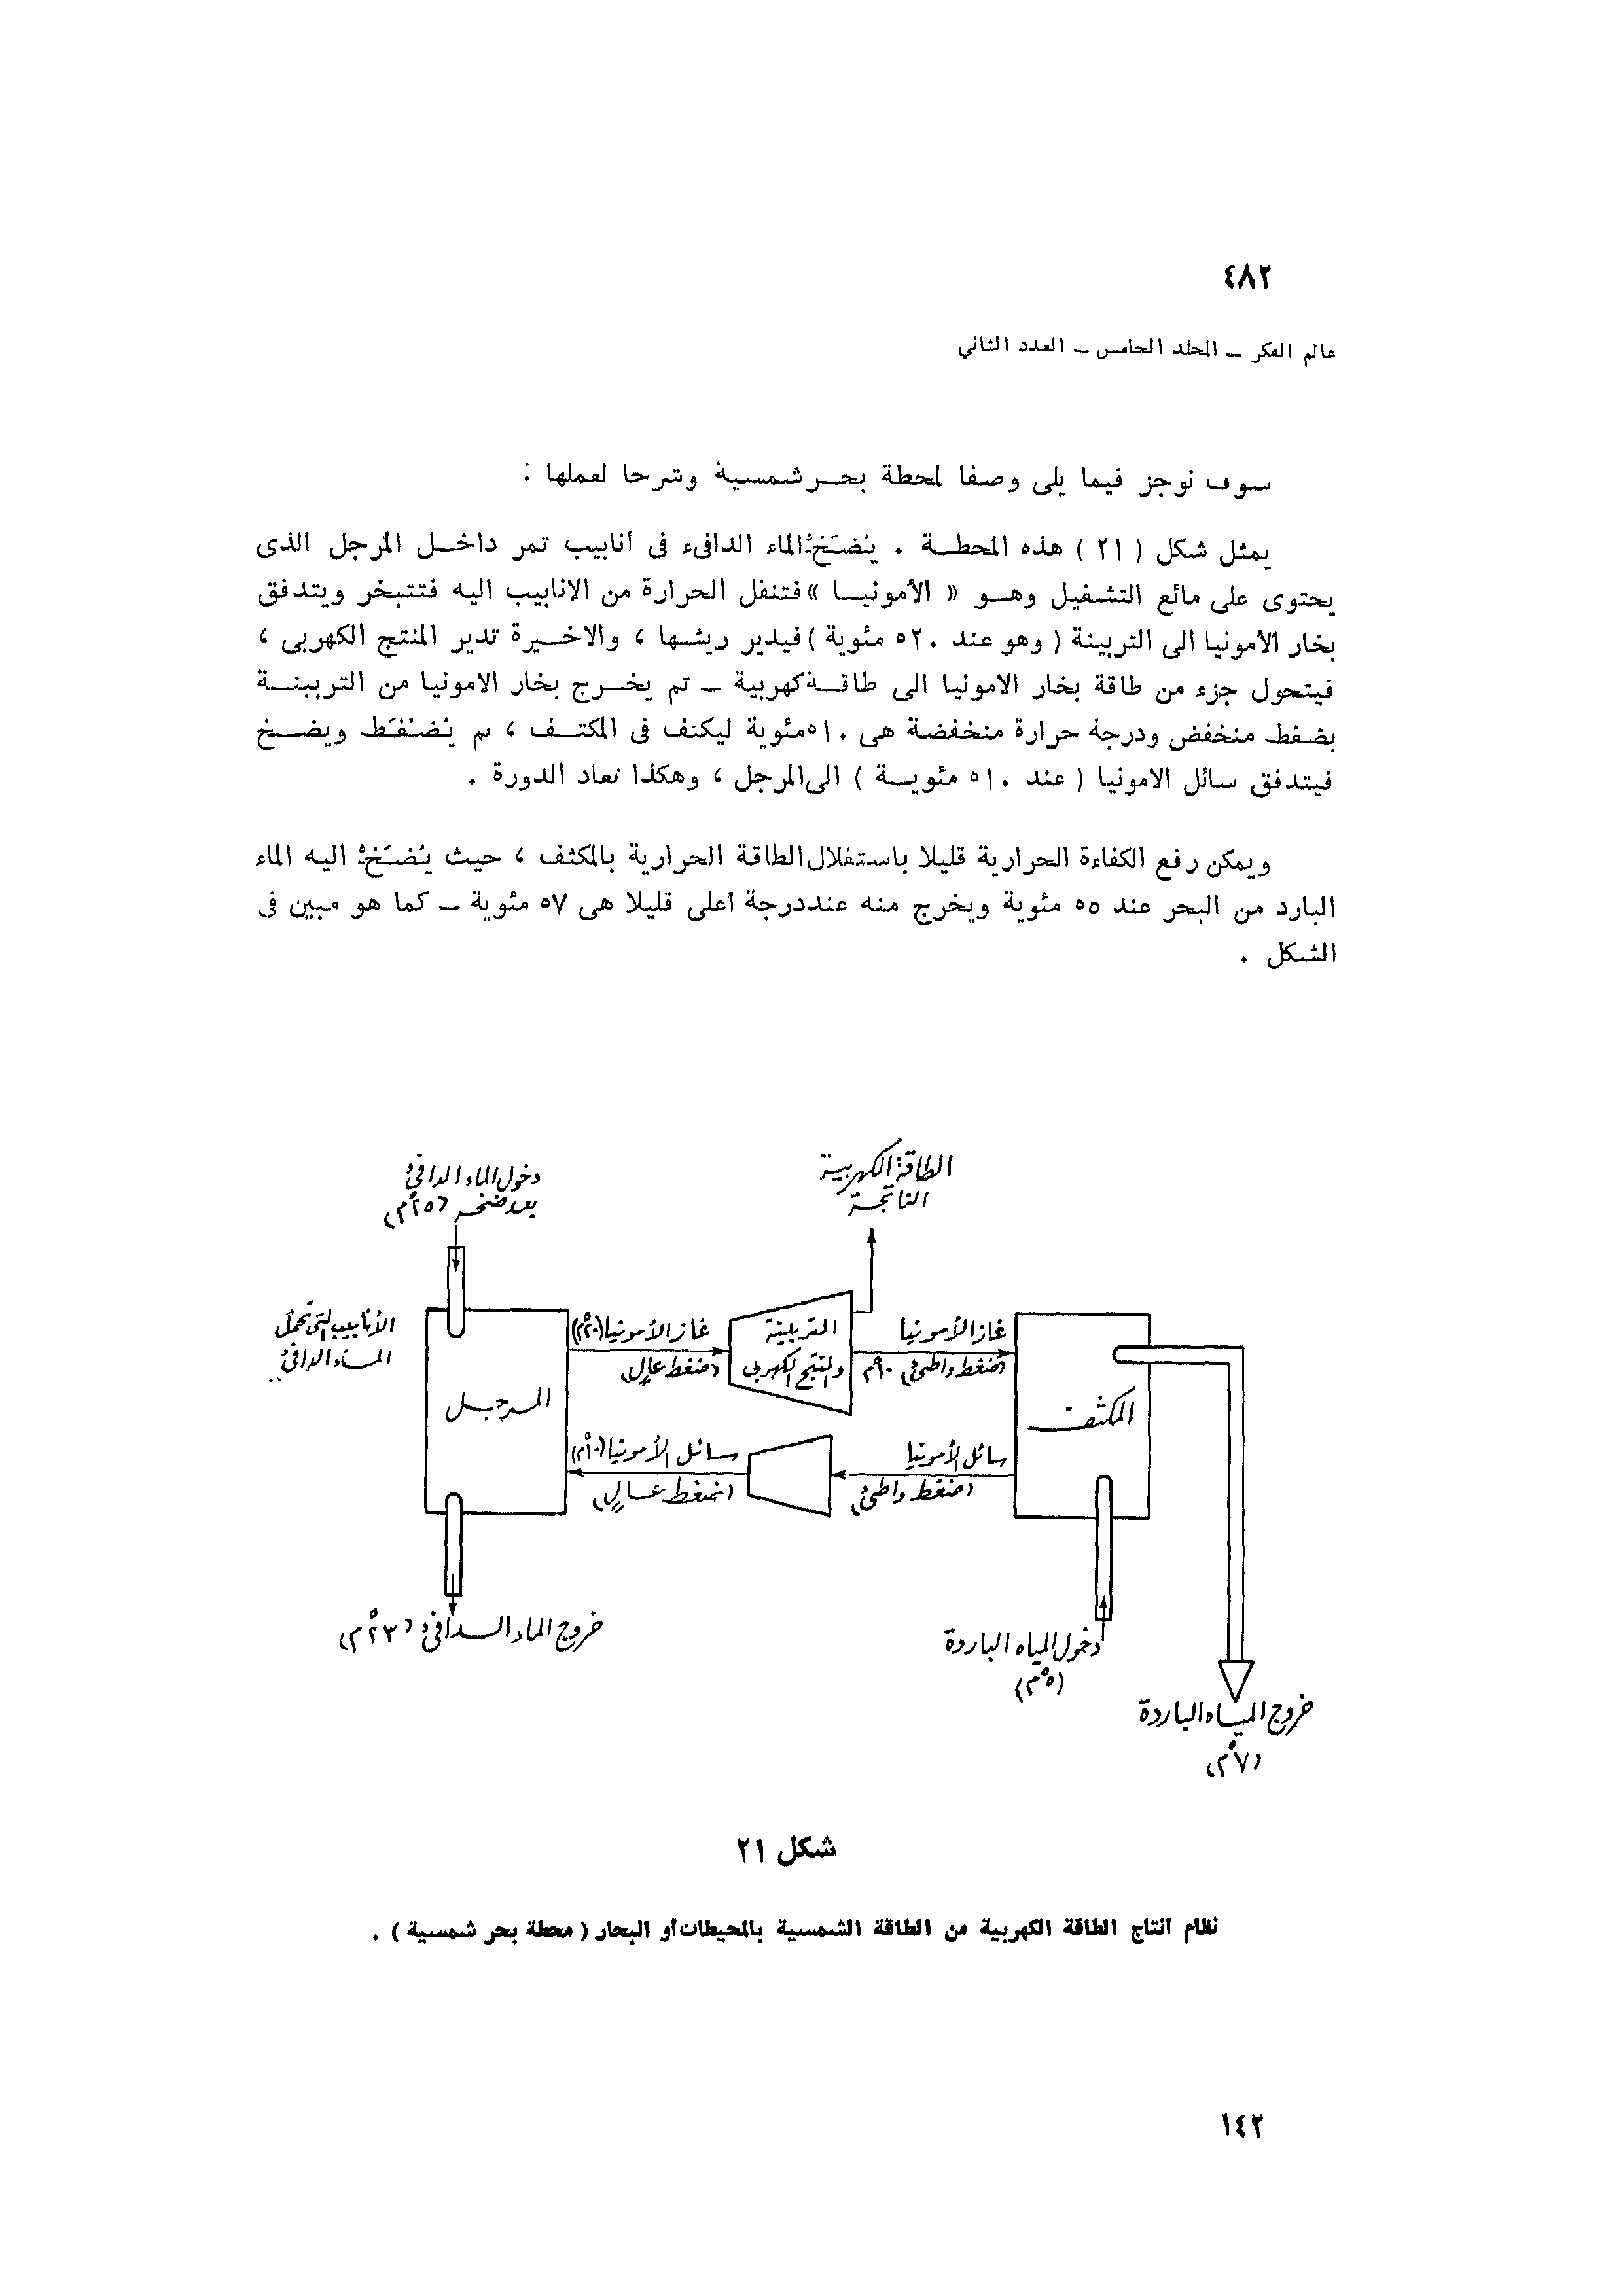 ٤٨٢
عالم الفكر – المجلد الخامس – العدد الثاني
سوف نوجز فيما يلى وصفا لمحطة بحر شمسية وشرحا لعملها :
يمثل شكل ( ٢١ ) هذه المحطة . يُضَخُّ الماء الدافىء فى أنابيب تمر داخل المرجل الذى
يحتوى على مائع التشغيل وهو « الأمونيا » فتنقل الحرارة من الانابيب اليه فتتبخر ويتدفق
بخار الأمونيا الى التربينة ( وهو عند ٢٠° مئوية ) فيدير ريشها ، والاخيرة تدير المنتج الكهربى ،
فيتحول جزء من طاقة بخار الامونيا الى طاقة كهربية – ثم يخرج بخار الامونيا من التربينة
بضغط منخفض ودرجة حرارة منخفضة هى ١٠° مئوية ليكثف فى المكثف ، ثم يُضْغَط ويضخ
فيتدفق سائل الامونيا ( عند ١٠° مئوية ) الى المرجل ، وهكذا تعاد الدورة .
ويمكن رفع الكفاءة الحرارية قليلا باستغلال الطاقة الحرارية بالمكثف ، حيث يُضَخُّ اليه الماء
البارد من البحر عند ٥° مئوية ويخرج منه عند درجة أعلى قليلا هى ٧° مئوية – كما هو مبين فى
الشكل .
الطاقة الكهربية
الناتجة
دخول الماء الدافئ
بعد ضخه (٢٥°م)
الأنابيب التى تحمل
الماء الدافئ
غاز الأمونيا (٢٠°م)
(ضغط عالٍ)
التربينة
والمنتج الكهربى
غاز الأمونيا
(ضغط واطئ) ١٠°م
المرجل
المكثف
سائل الأمونيا (١٠°م)
(ضغط عالٍ)
سائل الأمونيا
(ضغط واطئ)
خروج الماء الدافئ (٢٣°م)
دخول المياه الباردة
(٥°م)
خروج المياه الباردة
(٧°م)
شكل ٢١
نظام انتاج الطاقة الكهربية من الطاقة الشمسية بالمحيطات أو البحار ( محطة بحر شمسية ) .
١٤٢